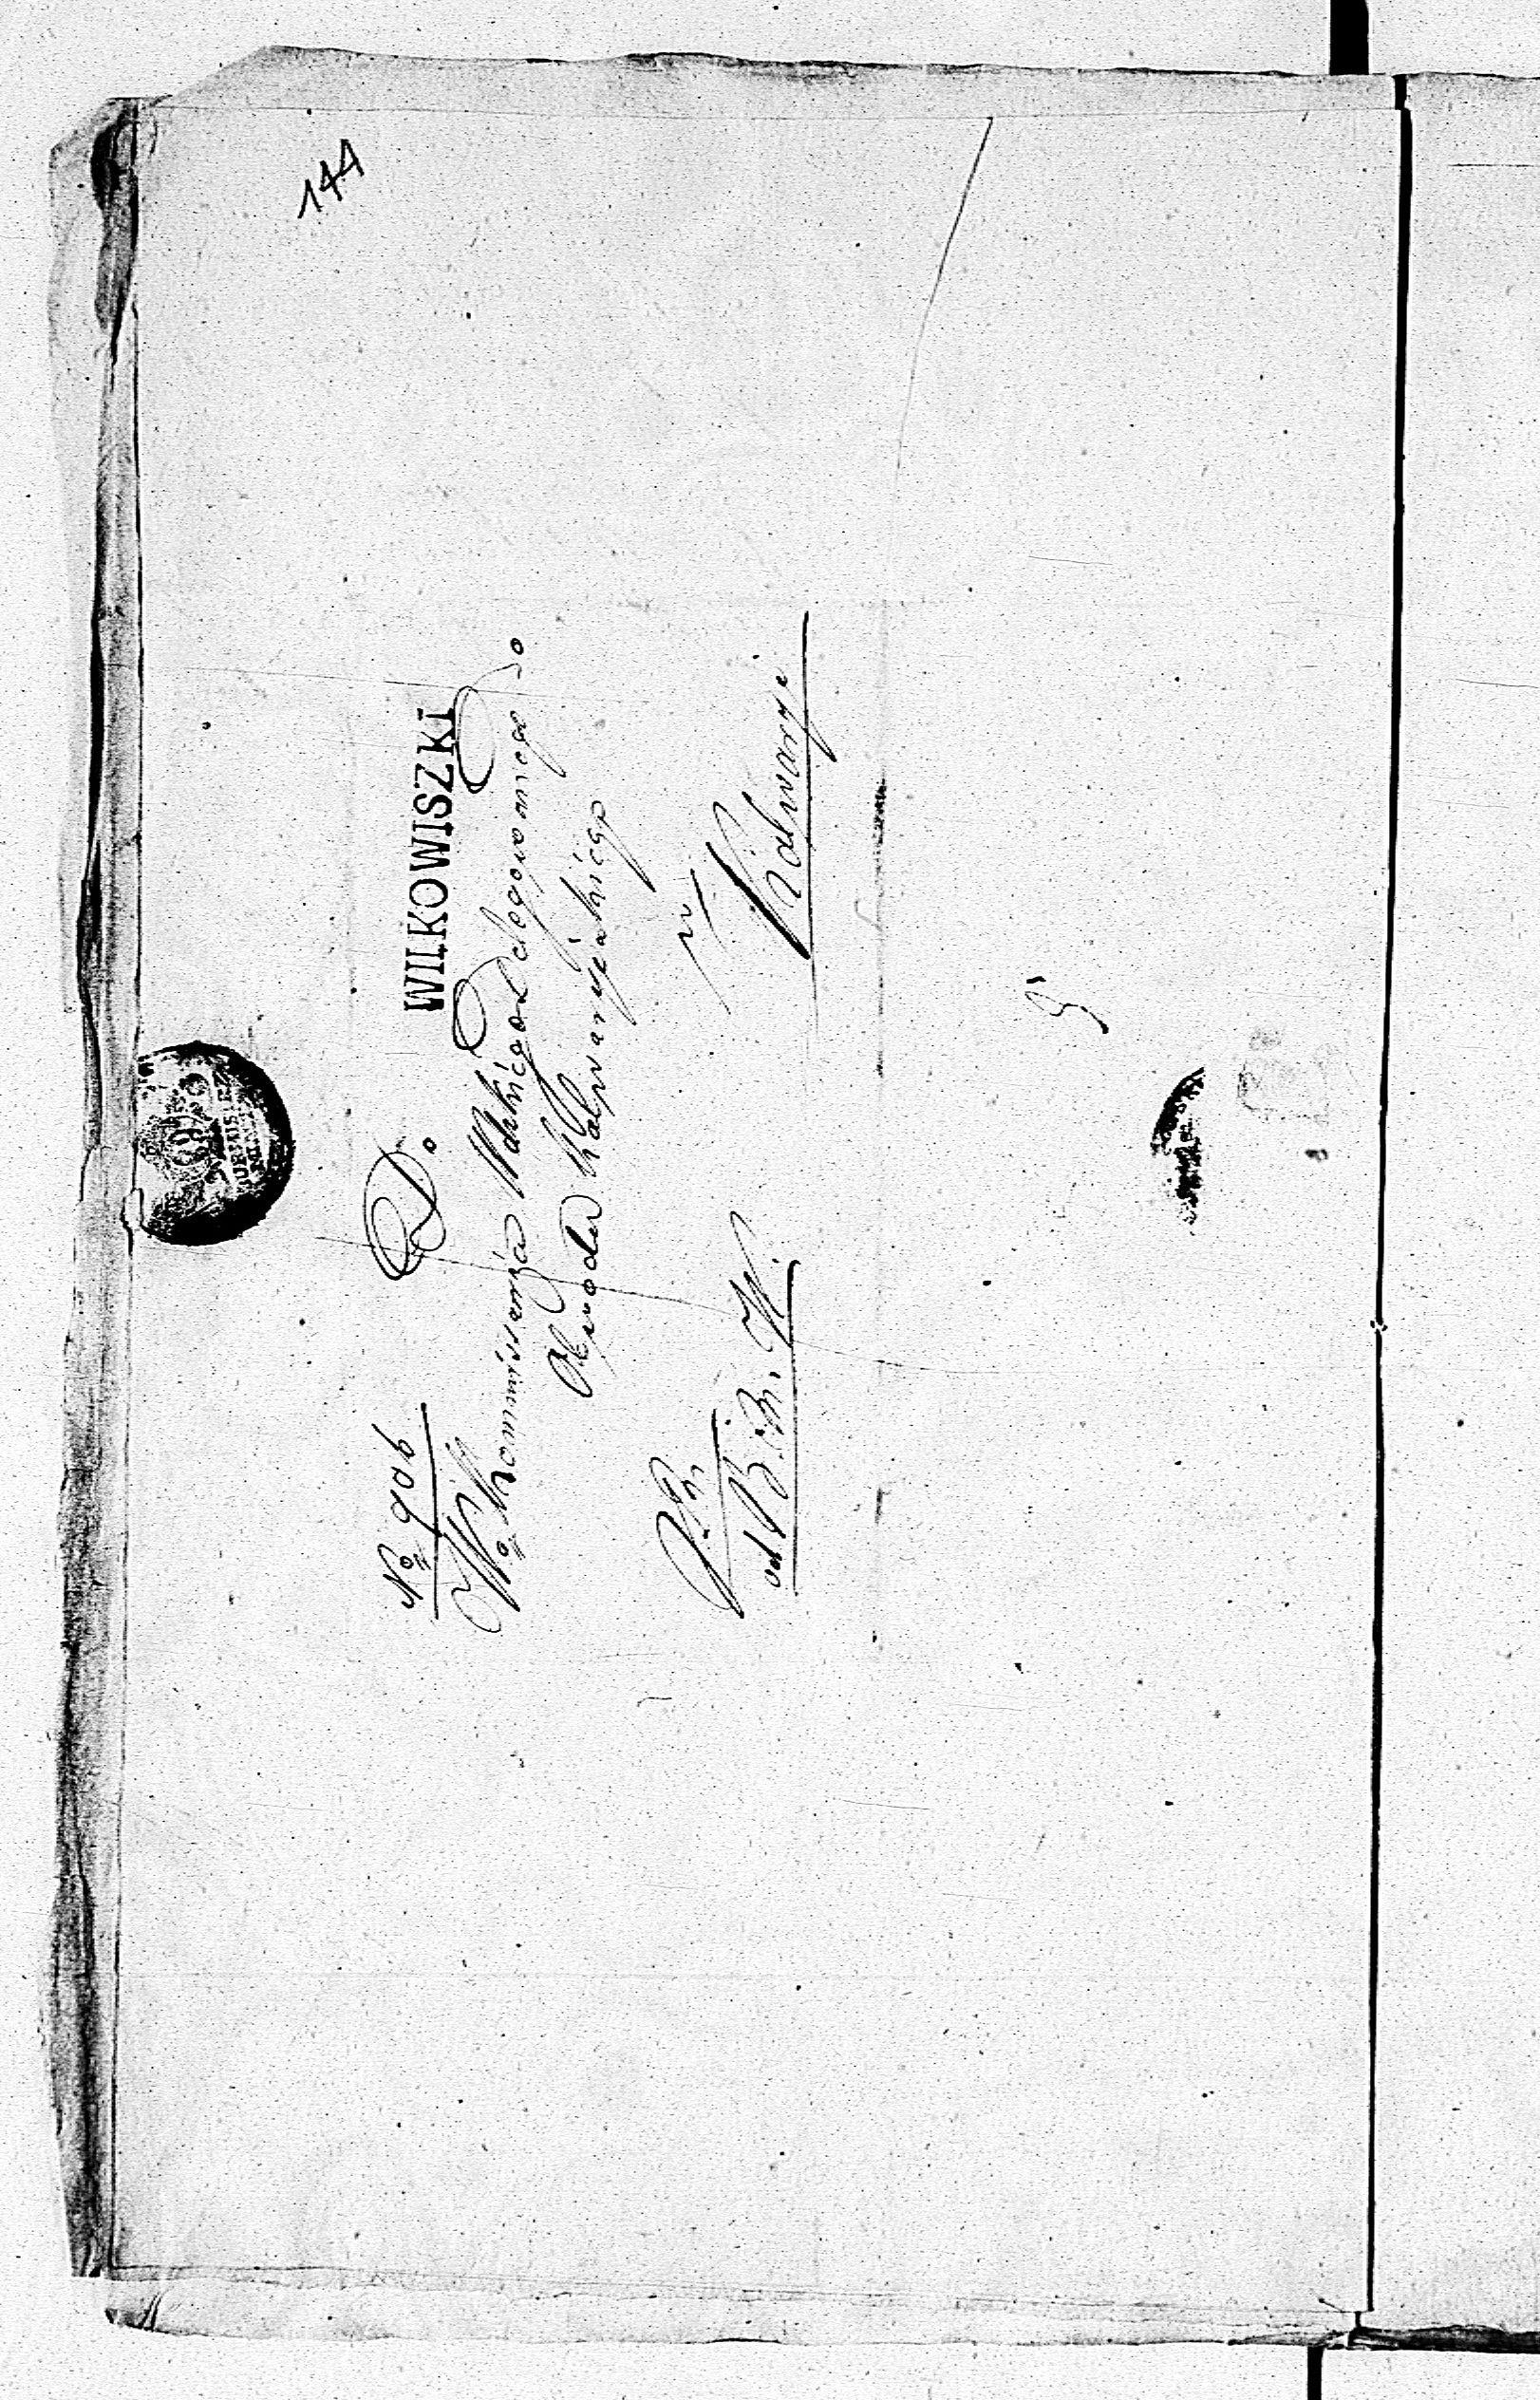 144
WILKOWISZKI
No 906
Do
Wo Kommissarza Wskiego delegowanego do
Obwodu Kalwaryiskiego
w
Kalwaryi
od B. M. W.